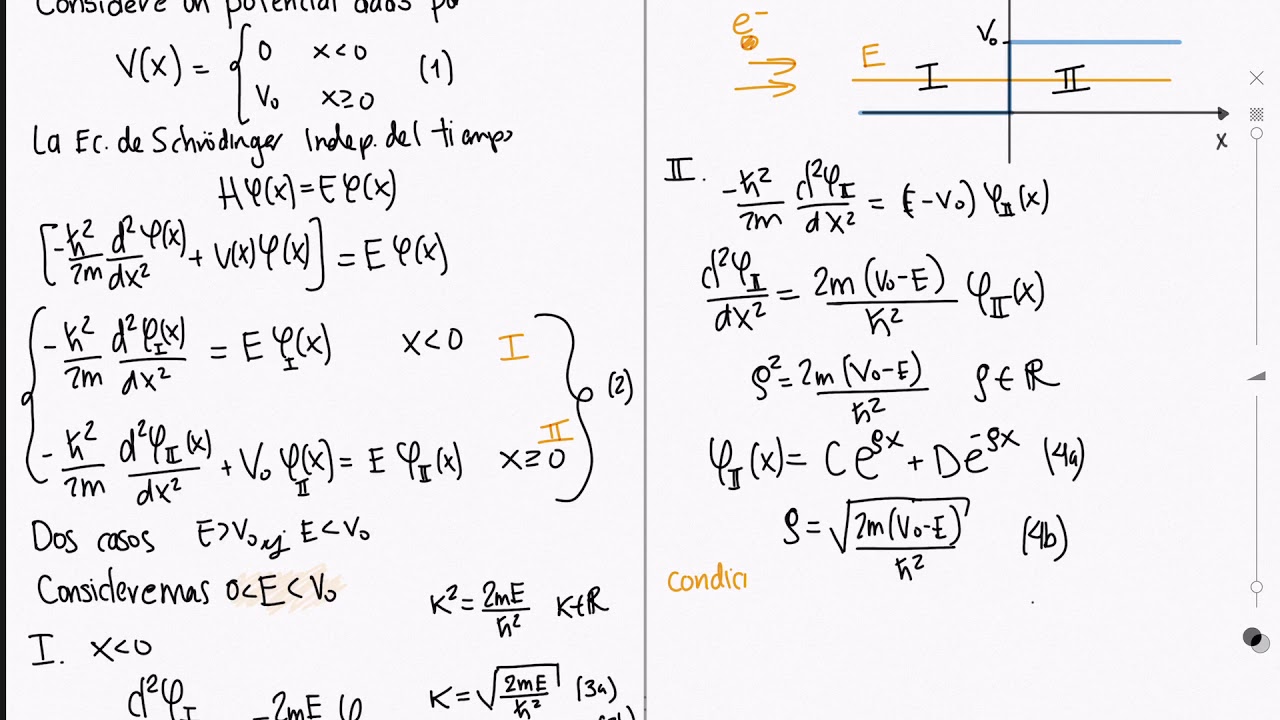 Considere un potencial dado po
V(x) = { 0 x<0
V₀ x≥0 (1)
La Ec. de Schrödinger Indep. del tiempo
Hφ(x)=Eφ(x)
[-ħ²/2m d²φ(x)/dx² + V(x)φ(x)] = E φ(x)
-ħ²/2m d²φ_I(x)/dx² = E φ_I(x) x<0 I
-ħ²/2m d²φ_II(x)/dx² + V₀ φ_II(x) = E φ_II(x) x≥0 II (2)
Dos casos E>V₀ y E<V₀
Consideremos 0<E<V₀
K² = 2mE/ħ² K∈ℝ
I. x<0
K = √(2mE/ħ²) (3a)
d²φ_I -2mE φ
e⁻
V₀
E
I II
x
II. -ħ²/2m d²φ_II/dx² = (E-V₀) φ_II(x)
d²φ_II/dx² = 2m(V₀-E)/ħ² φ_II(x)
ρ² = 2m(V₀-E)/ħ² ρ∈ℝ
φ_II(x) = Ce^ρx + De^-ρx (4a)
ρ = √(2m(V₀-E)/ħ²) (4b)
condici